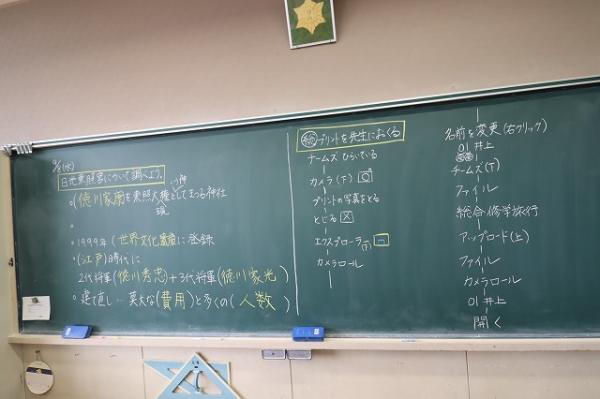 9/9(水)
日光東照宮について調べよう。
○(徳川家康)を東照大権としてまつる神社
この神
現
○
○1999年(世界文化遺産に登録
○(江戸)時代に
2代将軍(徳川秀忠)+3代将軍(徳川家光)
○建て直し…莫大な(費用)と多くの(人数)
総 プリントを先生におくる
チームズ ひらいている
カメラ(下)
プリントの写真をとる
とじる ×
エクスプローラ(下)
カメラロール
名前を変更(右クリック)
01 井上
チームズ(下)
ファイル
総合 修学旅行
アップロード(上)
ファイル
カメラロール
01 井上
開く